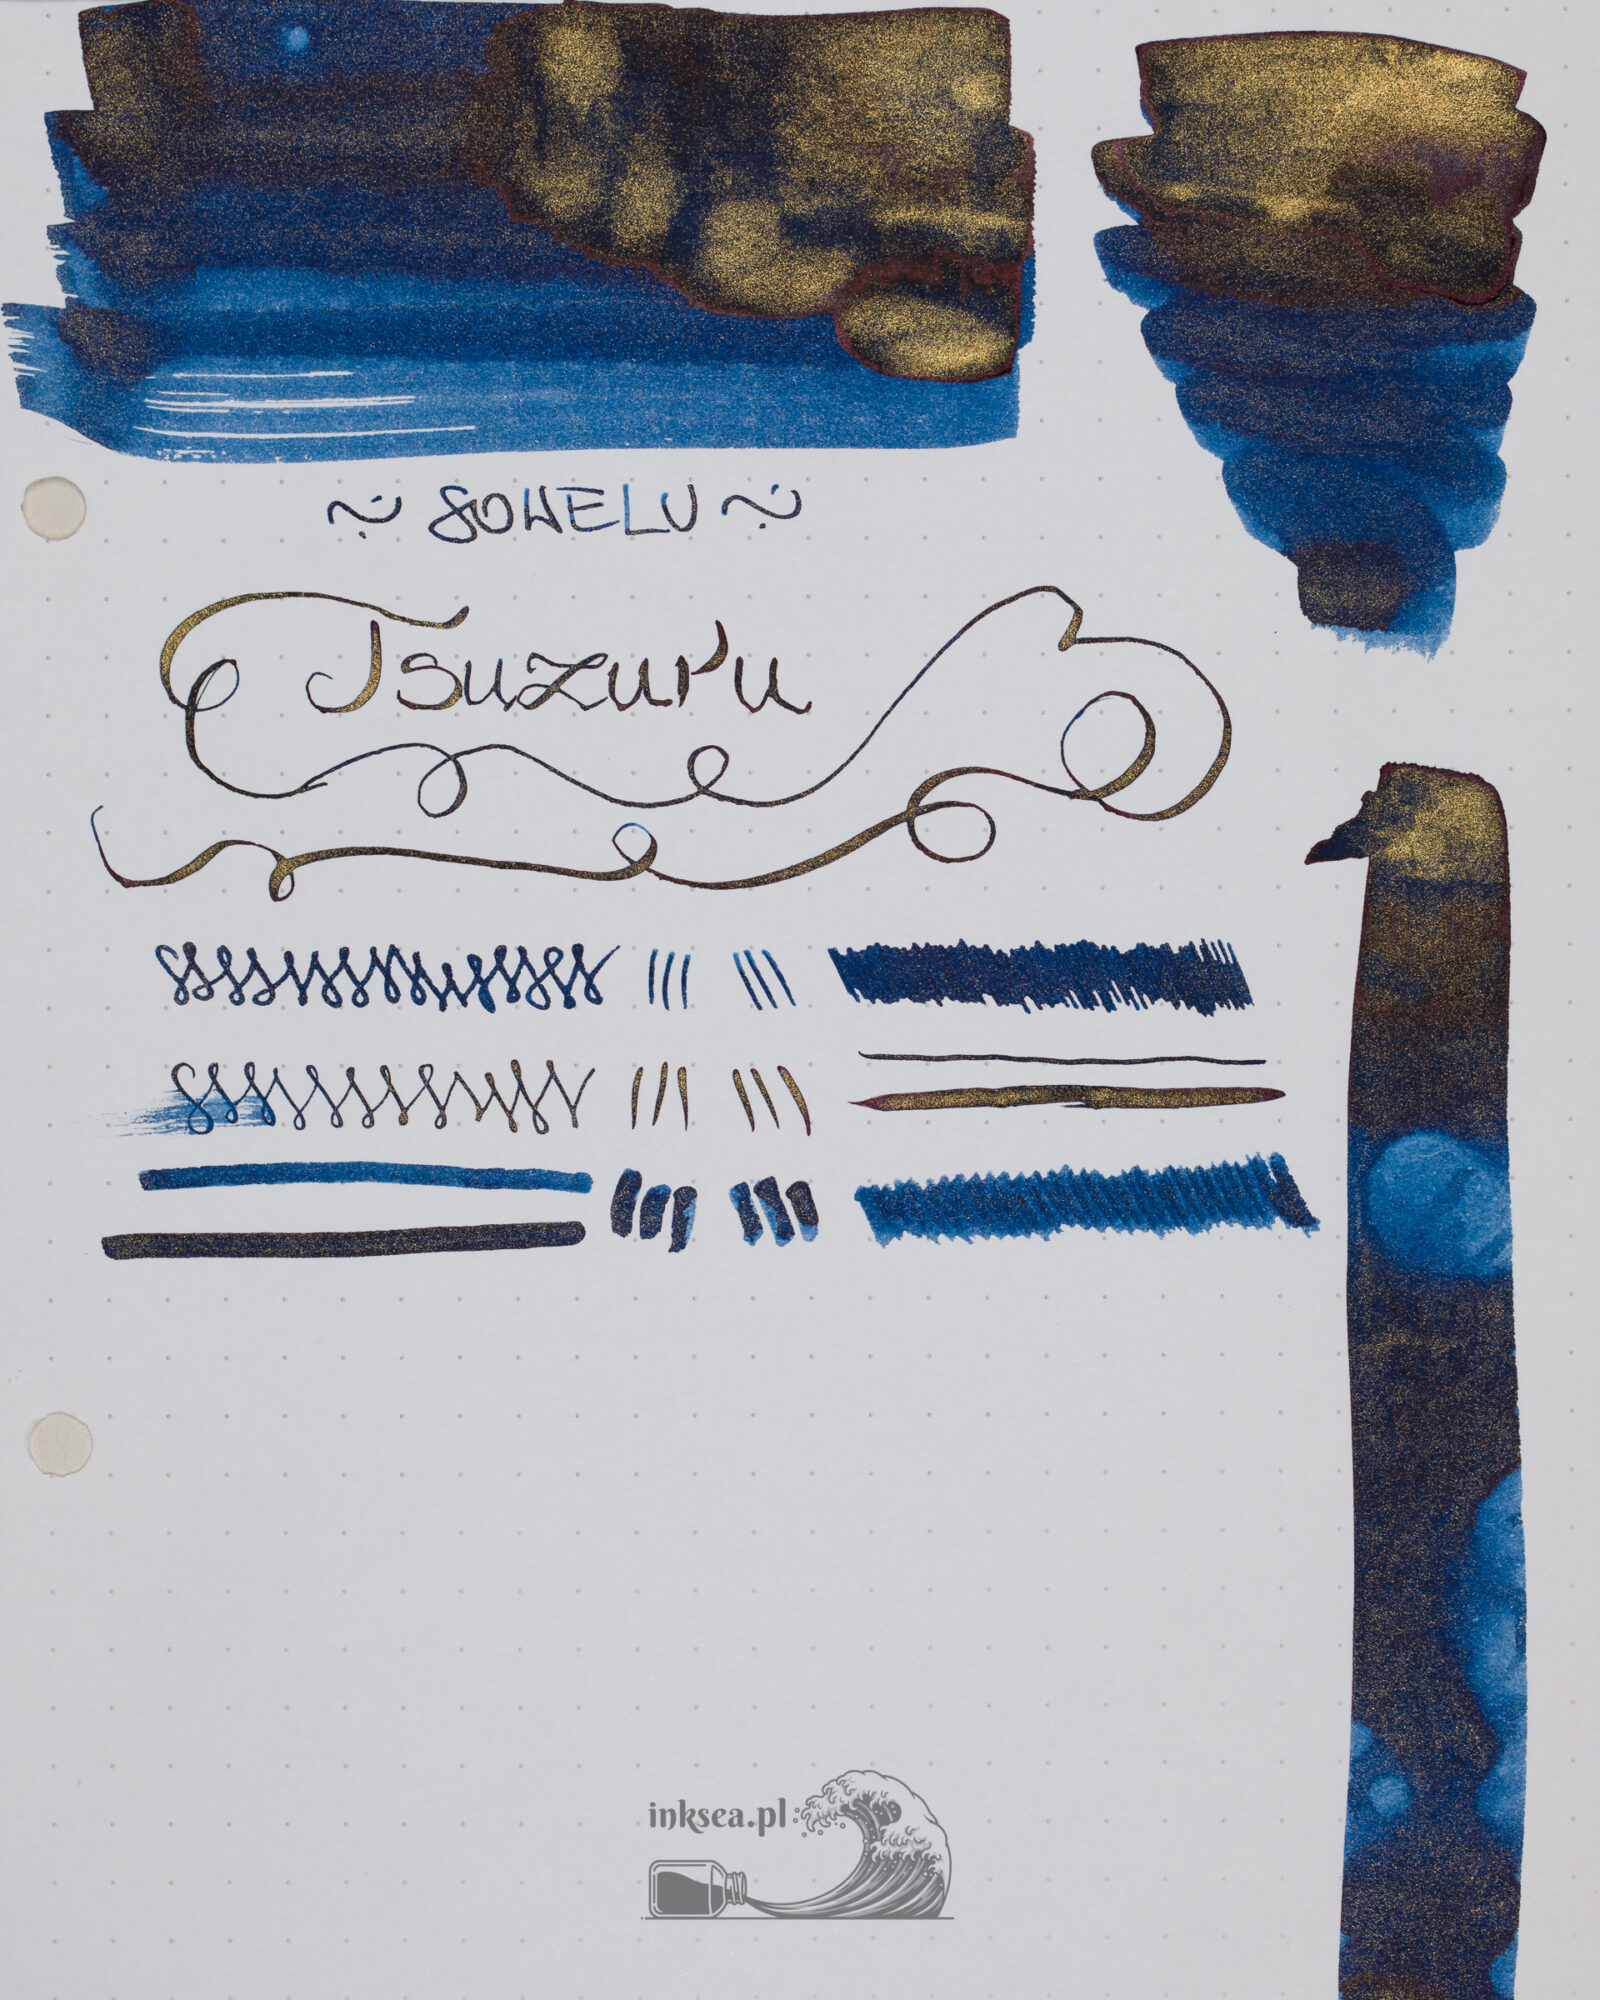 ~ SOWELU ~
Tsuzuru
inksea.pl